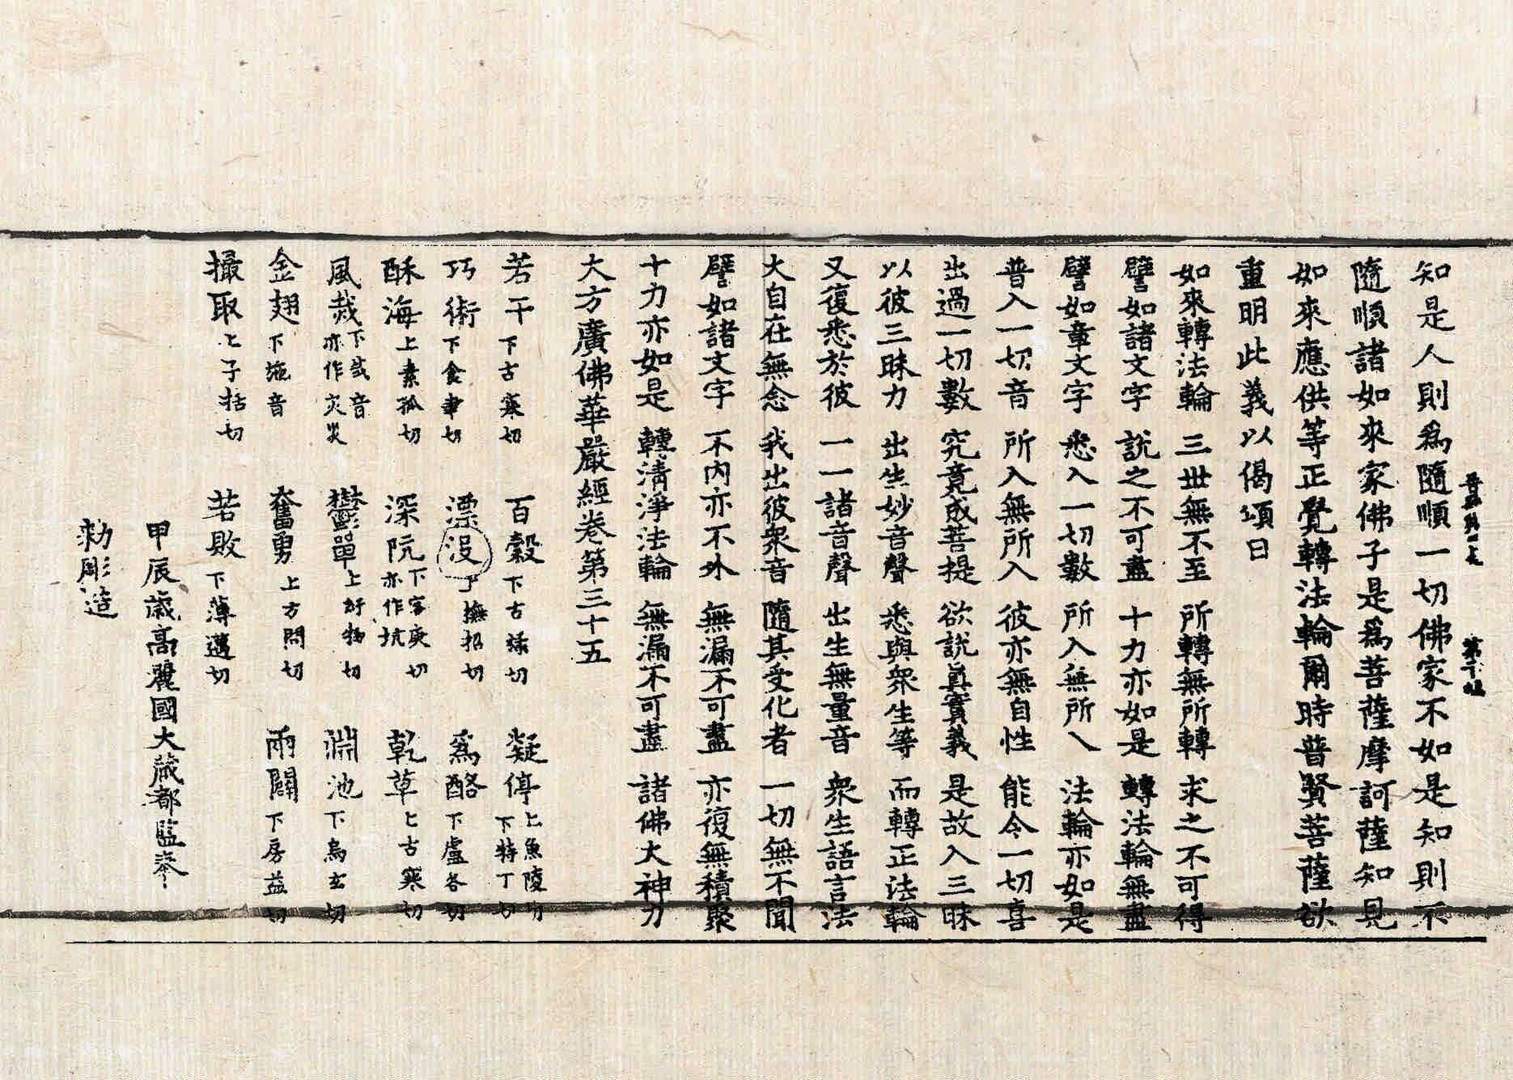 知是人則爲隨順一切佛家不如是知則不
隨順諸如來家佛子是爲菩薩摩訶薩知見
如來應供等正覺轉法輪爾時普賢菩薩欲
重明此義以偈頌曰
如來轉法輪 三世無不至 所轉無所轉 求之不可得
譬如諸文字 說之不可盡 十力亦如是 轉法輪無盡
譬如章文字 悉入一切數 所入無所入 法輪亦如是
普入一切音 所入無所入 彼亦無自性 能令一切喜
出過一切數 究竟成菩提 欲說眞實義 是故入三昧
以彼三昧力 出生妙音聲 悉與衆生等 而轉正法輪
又復悉於彼 一一諸音聲 出生無量音 衆生語言法
大自在無念 我出彼衆音 隨其受化者 一切無不聞
譬如諸文字 不內亦不外 無漏不可盡 亦復無積聚
十力亦如是 轉清淨法輪 無漏不可盡 諸佛大神力
大方廣佛華嚴經卷第三十五
若干 下古寒切 百穀 下古祿切 凝停 上魚陵切 下特丁切
巧術 下食聿切 漂沒 上撫招切 爲酪 下盧各切
酥海 上素孤切 深阬 下客庚切 亦作坑 乾草 上古寒切
風烖 下哉音 亦作灾災 鬱單 上紆物切 淵池 下烏玄切
金翅 下施音 奮勇 上方問切 兩闢 下房益切
撮取 上子括切 若敗 下薄邁切
甲辰歲高麗國大藏都監奉
勑彫造